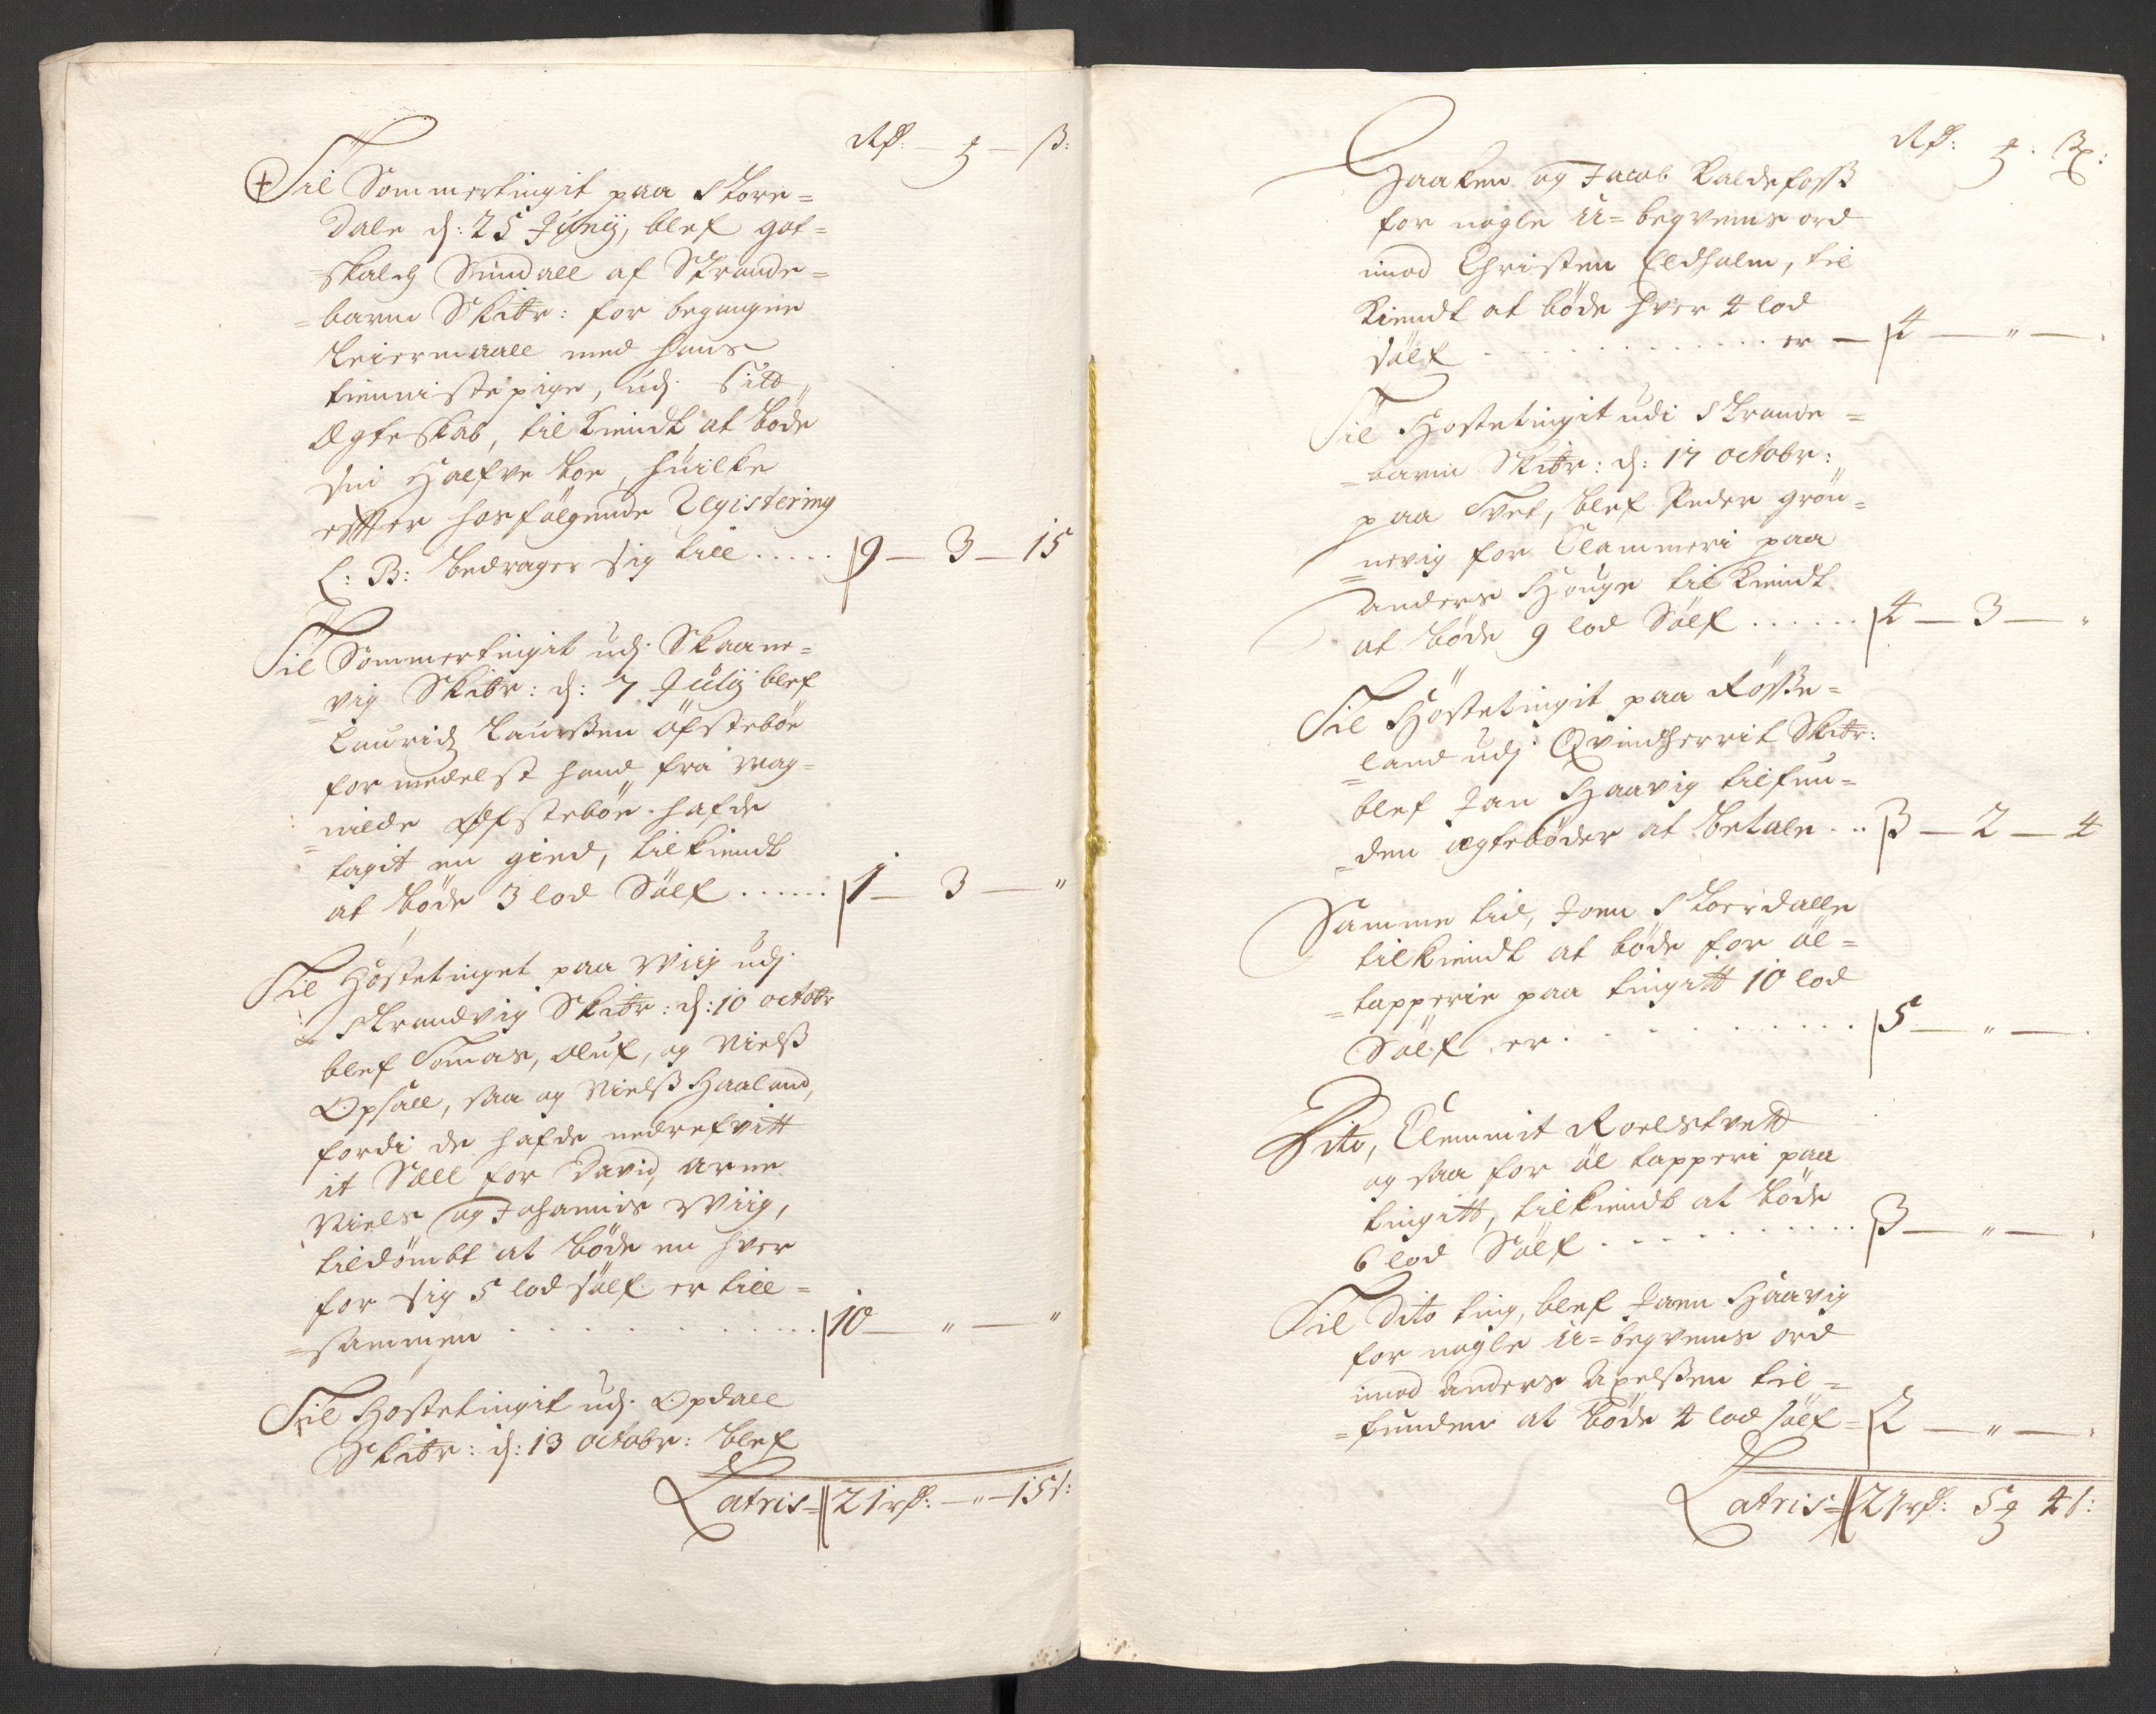 Rd: — ₰ — ß:
Til Sommertingit paa Store=
dale d: 25 Junij, blef got=
=skalch Sundall af Strande=
=barm Skibr: for begangne
Leiermaall med hans
tienniste pige, udj sitt
Ægteskab, tilkiendt at bøde
sin Halfve boe, huilke
effter hosfølgende Registering
L: B: bedrager sig till ..... 9 — 3 — 15
Til Sommertingit udj Skaane=
=vig Skibr: d: 7 Julij blef
Lauridz Laurssen Øfstebøe
formedelst hand fra Mag=
=nilde Øfstebøe hafde
tagit en gied, tilkiendt
at bøde 3 lod Sølf ...... 1 — 3 — "
Til Høstetinget paa Wiig udj
Strandvig Skibr: d: 10 octobr
blef Tomas, Oluf, og Nielß
Opsall, saa og Nielß Haaland,
fordi de hafde nedrefvitt
it Sæll for David, Arne
Niels og Johannis Wiig,
tildømbt at bøde en hver
for sig 5 lod sølf er till=
=sammen ............ 10 — " — "
Til Høstetingit udj Opdall
Skibr: d: 13 octobr: blef
Latris = 21 rd: — " — 15 s:
Rd: ₰. ß:
Haaken og Jacob Kaldefoss
for nogle U=beqvems ord
imod Christen Eldholm, til
kiendt at bøde hver 4 lod
sølf ............ er — 4 — " —
Til Høstetingit udi Strande=
=barm Skibr: d: 17 octobr:
paa Tvet, blef Peder grøn=
=nevig for Clammeri paa
Anders Houge tilkiendt
at bøde 9 lod Sølf ...... 4 — 3 — "
Til Høstetingit paa Røsse=
=land udj Qvindherrit Skibr:
blef Jan Haavig tilfun=
=den ægtebøder at betale .. 3 — 2 — 4
Samme tid, Joen Skordalle
tilkiendt at bøde for øl=
=tapperie paa tingitt 10 lod
Sølf er ............ 5 — " —
Dito, Clemmit Roelstvett
og saa for øl tapperi paa
tingitt, tilkiendt at bøde
6 lod Sølf ............ 3 — " —
Til dito ting, blef Jann Haavig
for nogle U=beqvems ord
imod Anders Axelssen til=
=funden at bøde 4 lod sølf = 2 — " —
Latris = 21 rd: 5 ₰ 4 s: